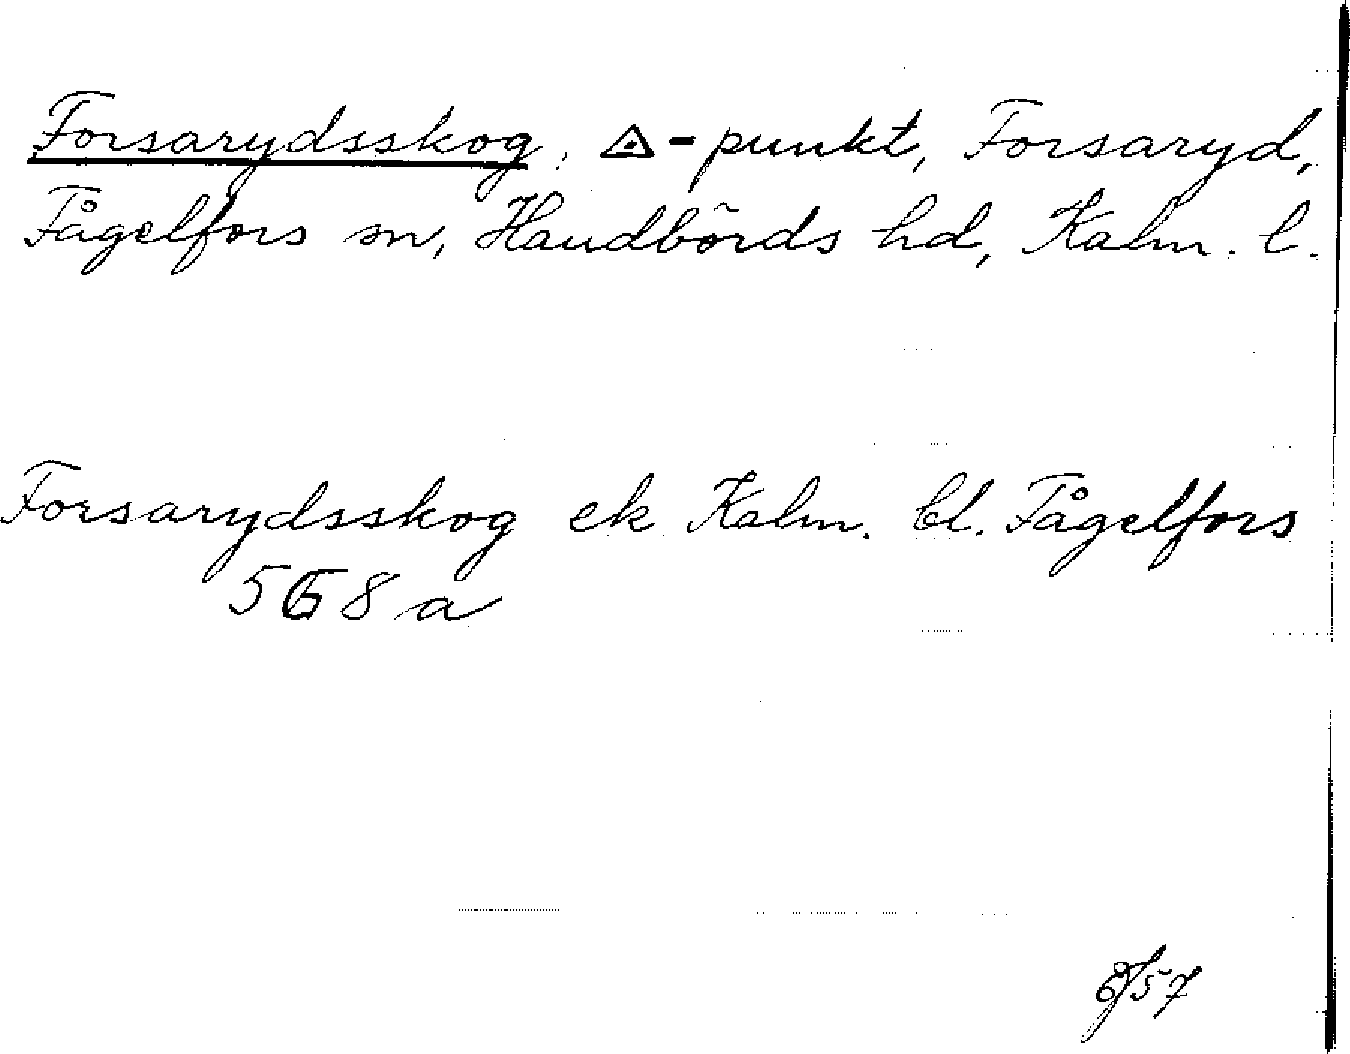 Forsarydsskog, △-punkt, Forsaryd,
Fågelfors sn, Handbörds hd, Kalm. l.
Forsarydsskog ek Kalm. bl. Fågelfors
5G8a